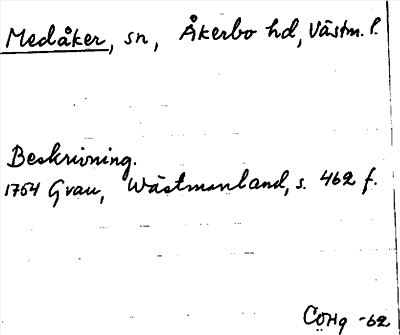 Medåker, sn, Åkerbo hd, Västm. l.
Beskrivning.
1754 Grau, Wästmanland, s. 462 f.
COHg -62